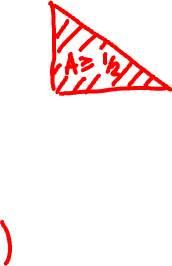 A ≥ 1/2
)